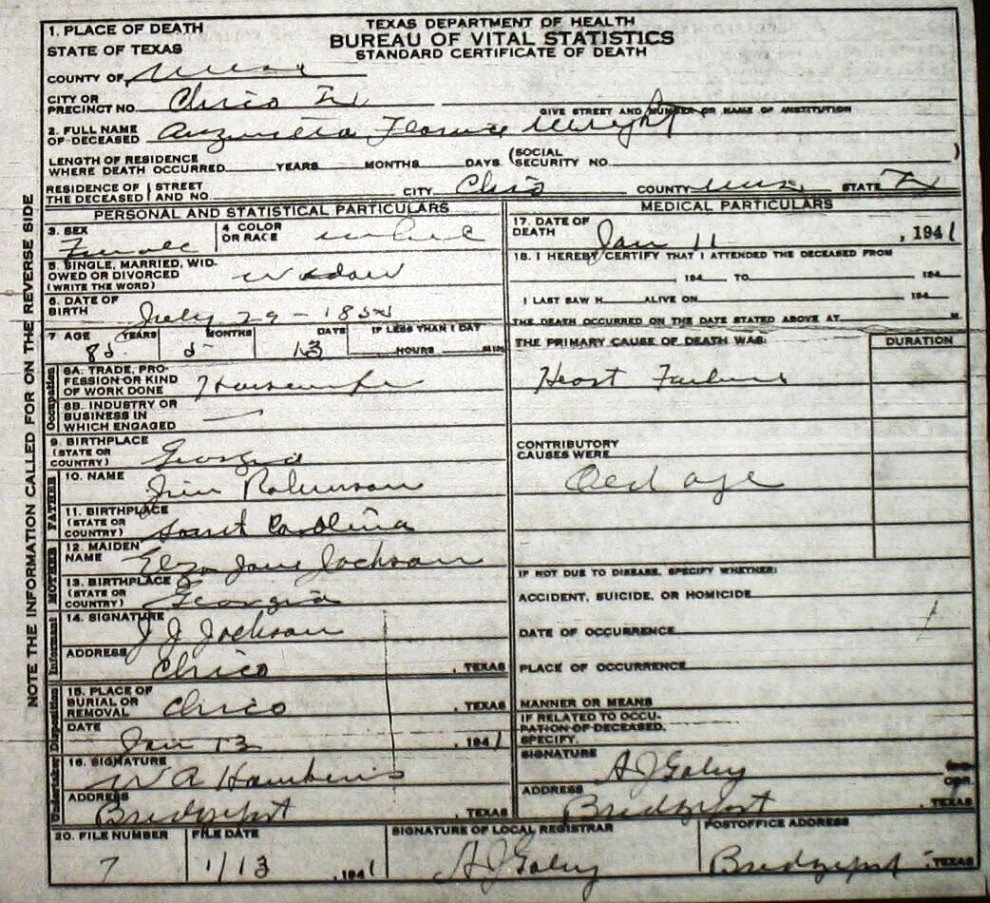 TEXAS DEPARTMENT OF HEALTH
BUREAU OF VITAL STATISTICS
STANDARD CERTIFICATE OF DEATH
1. PLACE OF DEATH
STATE OF TEXAS
COUNTY OF
CITY OR PRECINCT NO. Chico
GIVE STREET AND NUMBER OR NAME OF INSTITUTION
2. FULL NAME OF DECEASED Florence Wright
LENGTH OF RESIDENCE WHERE DEATH OCCURRED YEARS MONTHS DAYS (SOCIAL SECURITY NO. )
RESIDENCE OF THE DECEASED STREET AND NO. CITY Chico COUNTY STATE
NOTE THE INFORMATION CALLED FOR ON THE REVERSE SIDE
PERSONAL AND STATISTICAL PARTICULARS
3. SEX Female
4 COLOR OR RACE white
5. SINGLE, MARRIED, WIDOWED OR DIVORCED (WRITE THE WORD) Widow
6. DATE OF BIRTH July 29 - 1855
7 AGE YEARS MONTHS DATE IF LESS THAN 1 DAY
85 5 13 HOURS MIN
Occupation
8A. TRADE, PROFESSION OR KIND OF WORK DONE Housewife
8B. INDUSTRY OR BUSINESS IN WHICH ENGAGED —
9. BIRTHPLACE (STATE OR COUNTRY) Georgia
FATHER
10. NAME Jim Robinson
11. BIRTHPLACE (STATE OR COUNTRY) Carolina
MOTHER
12. MAIDEN NAME Jane Jackson
13. BIRTHPLACE (STATE OR COUNTRY) Georgia
Informant
14. SIGNATURE J J Jackson
ADDRESS Chico , TEXAS
Disposition
15. PLACE OF BURIAL OR REMOVAL Chico , TEXAS
DATE Jan 13 , 1941
Undertaker
16. SIGNATURE W A Hawkins
ADDRESS Bridgeport , TEXAS
MEDICAL PARTICULARS
17. DATE OF DEATH Jan 11 , 1941
18. I HEREBY CERTIFY THAT I ATTENDED THE DECEASED FROM
194 TO 194
I LAST SAW H ALIVE ON 194
THE DEATH OCCURRED ON THE DATE STATED ABOVE AT M
THE PRIMARY CAUSE OF DEATH WAS: DURATION
Heart Failure
CONTRIBUTORY CAUSES WERE
Old age
IF NOT DUE TO DISEASE, SPECIFY WHETHER:
ACCIDENT, SUICIDE, OR HOMICIDE
DATE OF OCCURRENCE
PLACE OF OCCURRENCE
MANNER OR MEANS
IF RELATED TO OCCUPATION OF DECEASED, SPECIFY.
SIGNATURE A J Galey
ADDRESS Bridgeport , TEXAS
20. FILE NUMBER FILE DATE SIGNATURE OF LOCAL REGISTRAR POSTOFFICE ADDRESS
7 1/13 , 1941 A J Galey Bridgeport , TEXAS